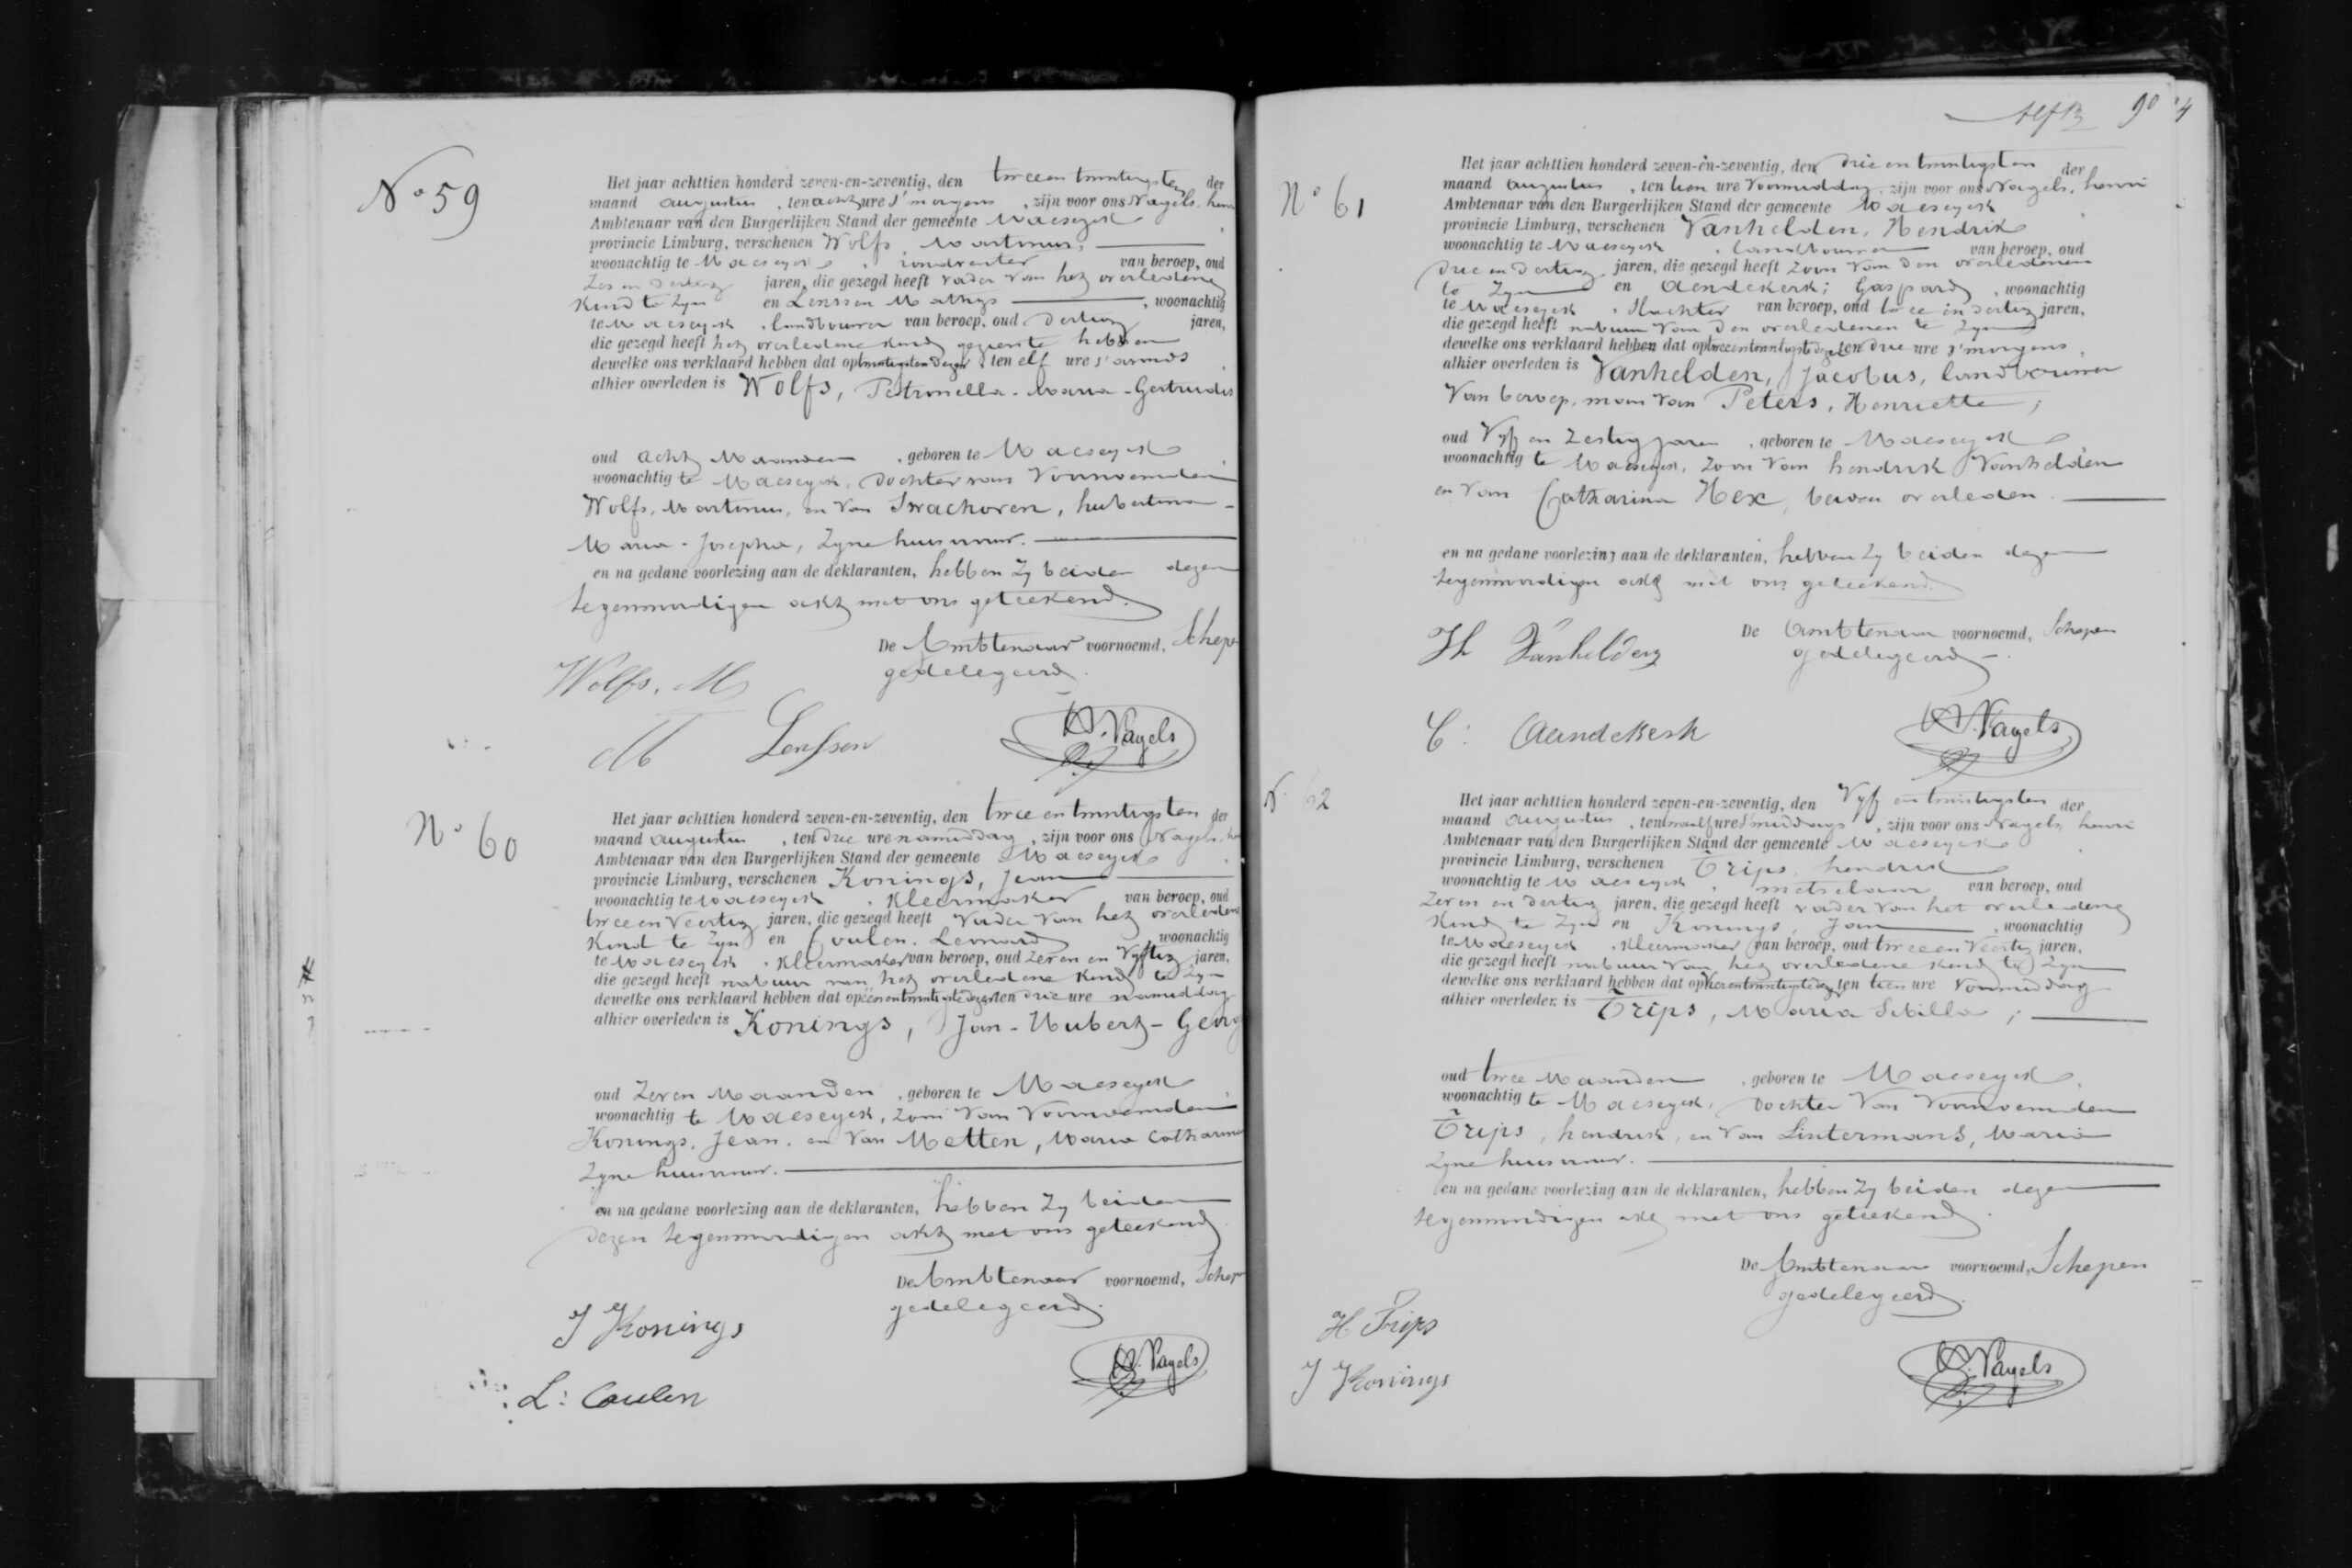 N° 59
Het jaar achttien honderd zeven-en-zeventig, den twee en twintigsten der
maand augustus , ten acht ure s'morgens , zijn voor ons Nagels, henri
Ambtenaar van den Burgerlijken Stand der gemeente Maeseyck
provincie Limburg, verschenen Wolfs, Martinus,
woonachtig te Maeseyck , van beroep, oud
zes en dertig jaren, die gezegd heeft vader van het overledene
kind te zyn en Lenssen Mathys , woonachtig
te Maeseyck , landbouwer van beroep, oud dertig jaren,
die gezegd heeft het overledene kind te hebben
dewelke ons verklaard hebben dat op twintigsten dezer , ten elf ure s'avonds
alhier overleden is Wolfs, Petronella - Maria - Gertrudis
oud acht Maanden , geboren te Maeseyck
woonachtig te Maeseyck, dochter van Voornoemden
Wolfs, Martinus, en van Swachoven, hubertina -
Maria - Josepha, Zyne huisvrouw.
en na gedane voorlezing aan de deklaranten, hebben zy beiden dezen
tegenwoordigen akt met ons geteekend.
De Ambtenaar voornoemd, Schepen
gedelegeerd.
Wolfs. M
M Lenssen
H. Nagels
N° 60
Het jaar achttien honderd zeven-en-zeventig, den twee en twintigsten der
maand augustus , ten drie ure namiddag , zijn voor ons Nagels, henri
Ambtenaar van den Burgerlijken Stand der gemeente Maeseyck
provincie Limburg, verschenen Konings, Jean
woonachtig te Maeseyck , Kleermaker van beroep, oud
twee en veertig jaren, die gezegd heeft Vader van het overledene
Kind te zyn en Coulen, Leonard woonachtig
te Maeseyck , Kleermaker van beroep, oud zeven en Vyftig jaren,
die gezegd heeft nabuur van het overledene kind te zyn
dewelke ons verklaard hebben dat op een en twintigste dezer ten drie ure namiddag
alhier overleden is Konings, Jan - Hubert - Georg
oud Zeven Maanden , geboren te Maeseyck
woonachtig te Maeseyck, zoon van Voornoemden
Konings, Jean, en van Metten, Maria Catharina
Zyne huisvrouw.
en na gedane voorlezing aan de deklaranten, hebben zy beiden
dezen tegenwoordigen akt met ons geteekend
De Ambtenaar voornoemd, Schepen
gedelegeerd.
J Konings
L: Coulen
H. Nagels
90
N° 61
Het jaar achttien honderd zeven-en-zeventig, den drie en twintigsten der
maand augustus , ten tien ure Voormiddag, zijn voor ons Nagels, henri
Ambtenaar van den Burgerlijken Stand der gemeente Maeseyck
provincie Limburg, verschenen Vanhelden, Hendrik
woonachtig te Maeseyck , landbouwer van beroep, oud
drie en dertig jaren, die gezegd heeft Zoon van den overledenen
te Zyn en Aendekerk; Gaspard , woonachtig
te Maeseyck , Slachter van beroep, oud twee en dertig jaren,
die gezegd heeft nabuur van den overledenen te Zyn
dewelke ons verklaard hebben dat op twee en twintigste dezer ten drie ure s'morgens
alhier overleden is Vanhelden, Jacobus, landbouwer
Van beroep, man van Peters, Henriette;
oud Vyf en Zestig jaren , geboren te Maeseyck
woonachtig te Maeseyck, Zoon van hendrik Vanhelden
en van Catharina Hex, beiden overleden.
en na gedane voorlezing aan de deklaranten, hebben zy beiden dezen
tegenwoordigen akt met ons geteekend.
De Ambtenaar voornoemd, Schepen
gedelegeerd
H Vanhelden
C: Aendekerk
H. Nagels
N° 62
Het jaar achttien honderd zeven-en-zeventig, den Vyf en twintigsten der
maand augustus , ten twaalf ure s'middags , zijn voor ons Nagels, henri
Ambtenaar van den Burgerlijken Stand der gemeente Maeseyck
provincie Limburg, verschenen Trips, hendrik
woonachtig te Maeseyck , metselaar van beroep, oud
zeven en dertig jaren, die gezegd heeft vader van het overledene
Kind te zyn en Konings, Jan , woonachtig
te Maeseyck , Kleermaker van beroep, oud twee en Veertig jaren,
die gezegd heeft nabuur van het overledene kind te zyn
dewelke ons verklaard hebben dat op vier en twintigste dezer ten tien ure Voormiddag
alhier overleden is Trips, Maria Sibilla;
oud twee Maanden , geboren te Maeseyck,
woonachtig te Maeseyck, dochter van Voornoemden
Trips, hendrik, en van Lintermans, Maria
Zyne huisvrouw.
en na gedane voorlezing aan de deklaranten, hebben zy beiden dezen
tegenwoordigen akt met ons geteekend
De Ambtenaar voornoemd, Schepen
gedelegeerd.
H. Trips
J Konings
H. Nagels